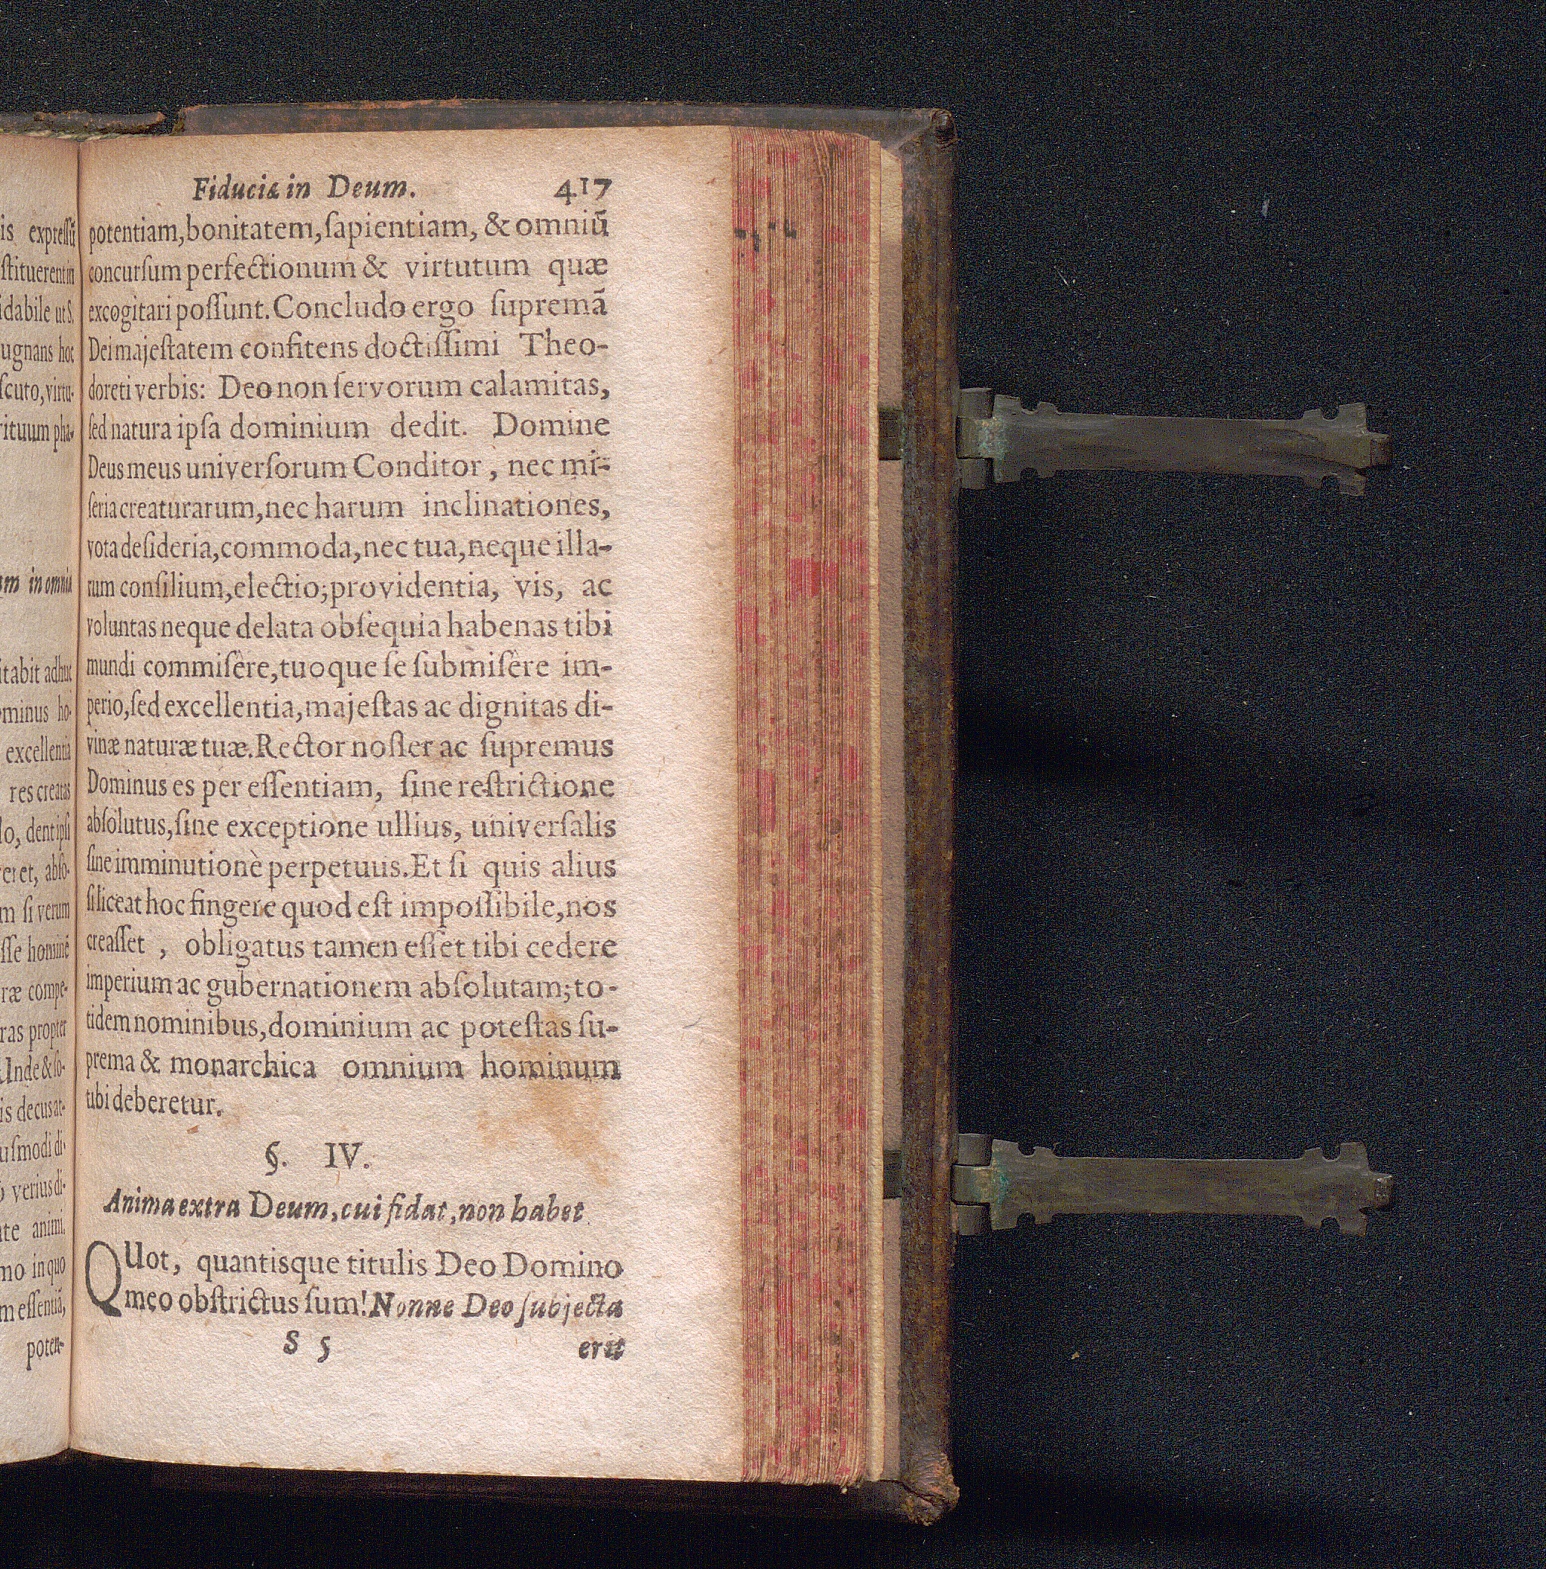 Fiduciæ in Deum. 417
potentiam, bonitatem, ſapientiam, & omniũ
concurſum perfectionum & virtutum quæ
excogitari poſſunt. Concludo ergo ſupremã
Dei majeſtatem confitens doctiſſimi Theo-
doreti verbis: Deo non ſervorum calamitas,
ſed natura ipſa dominium dedit. Domine
Deus meus univerſorum Conditor, nec mi-
ſeria creaturarum, nec harum inclinationes,
vota deſideria, commoda, nec tua, neque illa-
rum conſilium, electio; providentia, vis, ac
voluntas neque delata obſequia habenas tibi
mundi commiſère, tuoque ſe ſubmiſère im-
perio, ſed excellentia, majeſtas ac dignitas di-
vinæ naturæ tuæ. Rector noſter ac ſupremus
Dominus es per eſſentiam, ſine reſtrictione
abſolutus, ſine exceptione ullius, univerſalis
ſine imminutionè perpetuus. Et ſi quis alius
ſi liceat hoc fingere quod eſt impoſſibile, nos
creaſſet, obligatus tamen eſſet tibi cedere
imperium ac gubernationem abſolutam; to-
tidem nominibus, dominium ac poteſtas ſu-
prema & monarchica omnium hominum
tibi deberetur.
§. IV.
Anima extra Deum, cui fidat, non habet.
QUot, quantisque titulis Deo Domino
meo obſtrictus ſum! Nonne Deo ſubjecta
S 5 erit